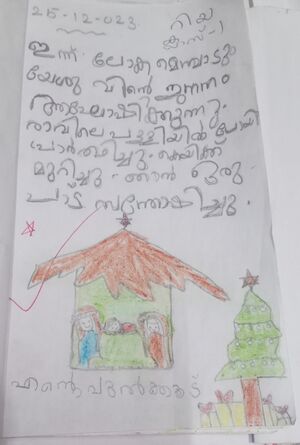 25-12-023
റിയ
ക്ലാസ്-1
ഇന്ന് ലോകമെമ്പാടും
യേശു വിന്റെ ജനനം
ആഘോഷിക്കുന്നു.
രാവിലെ പള്ളിയിൽ പോയി
പ്രാർത്ഥിച്ചു. കേയ്ക്ക്
മുറിച്ചു. ഞാൻ ഒരു
പാട് സന്തോഷിച്ചു.
എന്റെ പുൽക്കൂട്